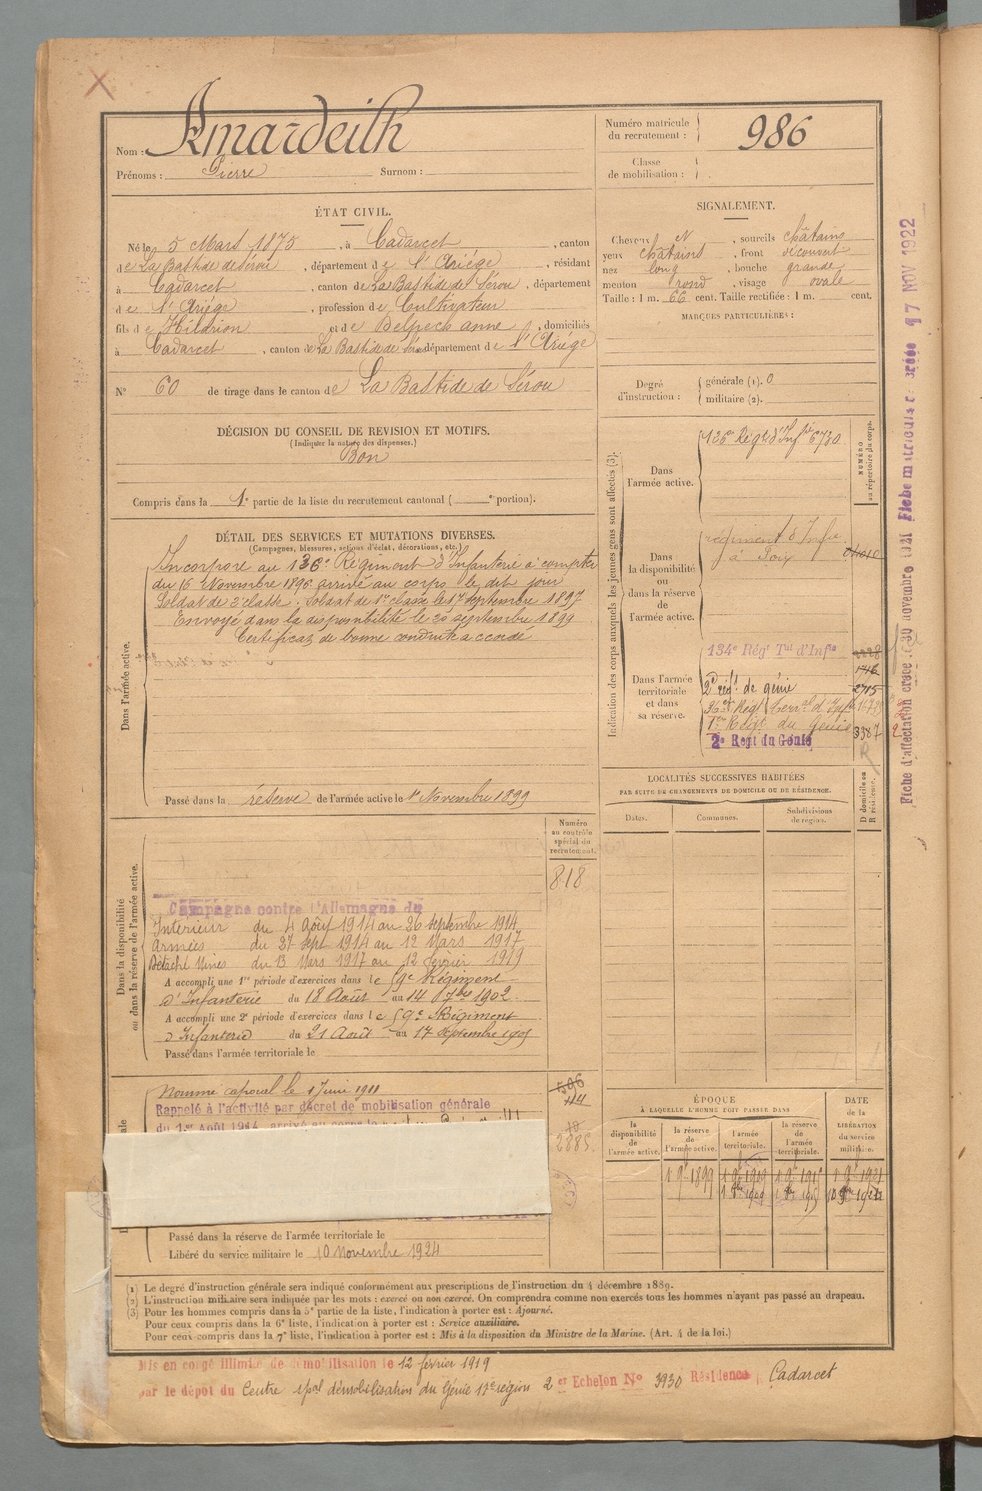 Amardeilh
Nom :
Prénoms : Pierre Surnom :
Numéro matricule
du recrutement :
986
Classe
de mobilisation :
ÉTAT CIVIL.
Né le 5 Mars 1875, à Cadarcet, canton
de La Bastide de Sérou, département de l'Ariége, résidant
à Cadarcet, canton de La Bastide de Sérou, département
de l'Ariége, profession de Cultivateur
fils de Hildrion et de Belpech anne, domiciliés
à Cadarcet, canton de La Bastide de Sérou département de l'Ariége
N° 60 de tirage dans le canton de La Bastide de Sérou
SIGNALEMENT.
Cheveux N, sourcils châtains
yeux châtains, front découvert
nez long, bouche grande
menton rond, visage ovale
Taille : 1 m. 66 cent. Taille rectifiée : 1 m. cent.
MARQUES PARTICULIÈRES :
Degré
d'instruction :
générale (1). 0
militaire (2).
DÉCISION DU CONSEIL DE REVISION ET MOTIFS.
(Indiquer la nature des dispenses.)
Bon
Compris dans la 1e partie de la liste du recrutement cantonal ( e portion).
DÉTAIL DES SERVICES ET MUTATIONS DIVERSES.
(Campagnes, blessures, actions d'éclat, décorations, etc.)
Dans l'armée active.
Incorporé au 136e Régiment d'Infanterie à compter
du 16 Novembre 1896 arrivé au corps le dit jour
Soldat de 2e classe. Soldat de 1re classe le 17 septembre 1897
Envoyé dans la disponibilité le 20 septembre 1899
Certificat de bonne conduite accordé
Passé dans la réserve de l'armée active le 1er Novembre 1899
Indication des corps auxquels les jeunes gens sont affectés (3).
Dans
l'armée active.
136e Régt d'Infie 6730
NUMÉRO
au répertoire du corps.
Dans
la disponibilité
ou
dans la réserve
de
l'armée active.
régiment d'Infie
à Foix
Dans l'armée
territoriale
et dans
sa réserve.
134e Régt Tal d'Infie
1716
2e régt. de génie
2715
1er Régt du Génie 3387
2e Regt du Génie
R
LOCALITÉS SUCCESSIVES HABITÉES
PAR SUITE DE CHANGEMENTS DE DOMICILE OU DE RÉSIDENCE.
Dates.
Communes.
Subdivisions
de région.
D domicile ou
R résidence.
Numéro
au contrôle
spécial du
recrutement.
818
Dans la disponibilité
ou dans la réserve de l'armée active.
Campagne contre l'Allemagne du
Intérieur du 4 Août 1914 au 26 septembre 1914
Armées du 27 sept 1914 au 12 Mars 1917
Détaché Mines du 13 Mars 1917 au 12 février 1919
A accompli une 1re période d'exercices dans le 59e Régiment
d'Infanterie du 18 Août au 14 7bre 1902.
A accompli une 2e période d'exercices dans le 59e Régiment
d'Infanterie du 21 Août au 17 septembre 1905
Passé dans l'armée territoriale le
Nommé caporal le 1 Juin 1911
Rappelé à l'activité par décret de mobilisation générale
du 1er Août 1914, arrivé au corps le
596
114
2885
Passé dans la réserve de l'armée territoriale le
Libéré du service militaire le 10 novembre 1924
ÉPOQUE
À LAQUELLE L'HOMME DOIT PASSER DANS
la
disponibilité
de
l'armée active.
la réserve
de
l'armée active.
l'armée
territoriale.
la réserve
de
l'armée
territoriale.
DATE
de la
LIBÉRATION
du service
militaire.
1 9bre 1899
(1) Le degré d'instruction générale sera indiqué conformément aux prescriptions de l'instruction du 4 décembre 1889.
(2) L'instruction militaire sera indiquée par les mots : exercé ou non exercé. On comprendra comme non exercés tous les hommes n'ayant pas passé au drapeau.
(3) Pour les hommes compris dans la 5e partie de la liste, l'indication à porter est : Ajourné.
Pour ceux compris dans la 6e liste, l'indication à porter est : Service auxiliaire.
Pour ceux compris dans la 7e liste, l'indication à porter est : Mis à la disposition du Ministre de la Marine. (Art. 4 de la loi.)
Mis en congé illimité de démobilisation le 12 février 1919
par le dépôt du Centre spal démobilisation du Génie 17e région 2er Echelon No 3930 Résidence Cadarcet
Fiche d'affectation créée 30 novembre Fiche matricule créée 17 NOV 1922